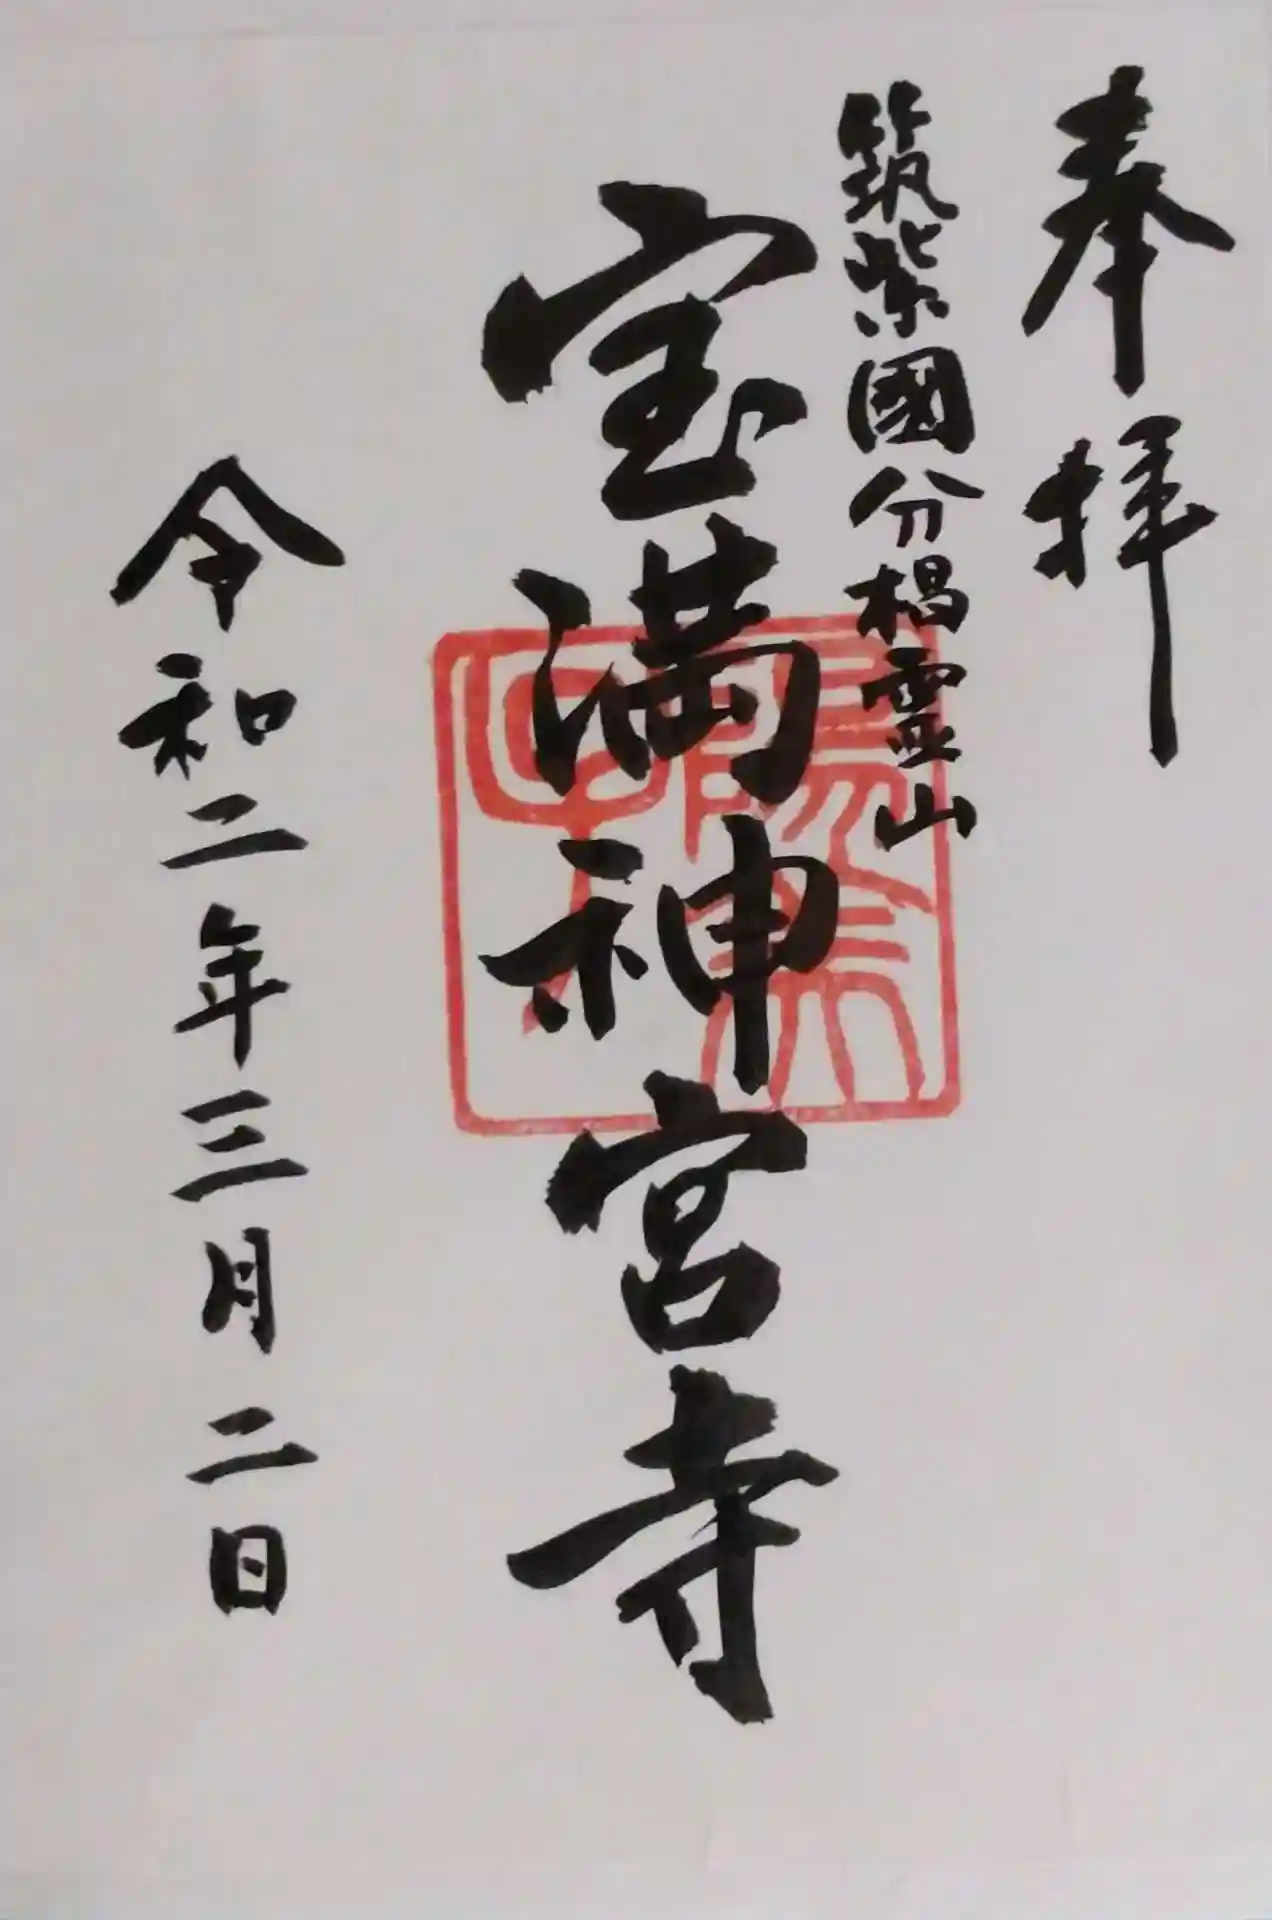 奉拝
筑紫國分椙霊山
宝満神宮寺
令和二年三月二日